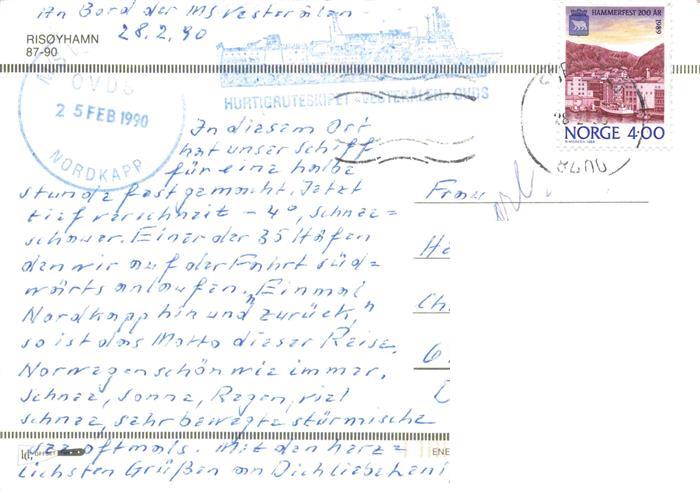 An Bord der MS Vesterålen
28.2.90
RISØYHAMN
87-90
OVDS
25 FEB 1990
NORDKAPP
HURTIGRUTESKIPET «VESTERÅLEN» OVDS
HAMMERFEST 200 ÅR
1989
NORGE 4.00
In diesem Ort
hat unser Schiff
für eine halbe
Stunde festgemacht. Jetzt
tief verschneit -4°, Schnee=
schauer. Einer der 35 Häfen
den wir auf der Fahrt süd=
wärts anlaufen. "Einmal
Nordkapp hin und zurück"
so ist das Motto dieser Reise.
Norwegen schön wie immer.
Schnee, Sonne, Regen, viel
Schnee, sehr bewegte stürmische
See oftmals. Mit den herz=
lichsten Grüßen an Dich liebe
Frau